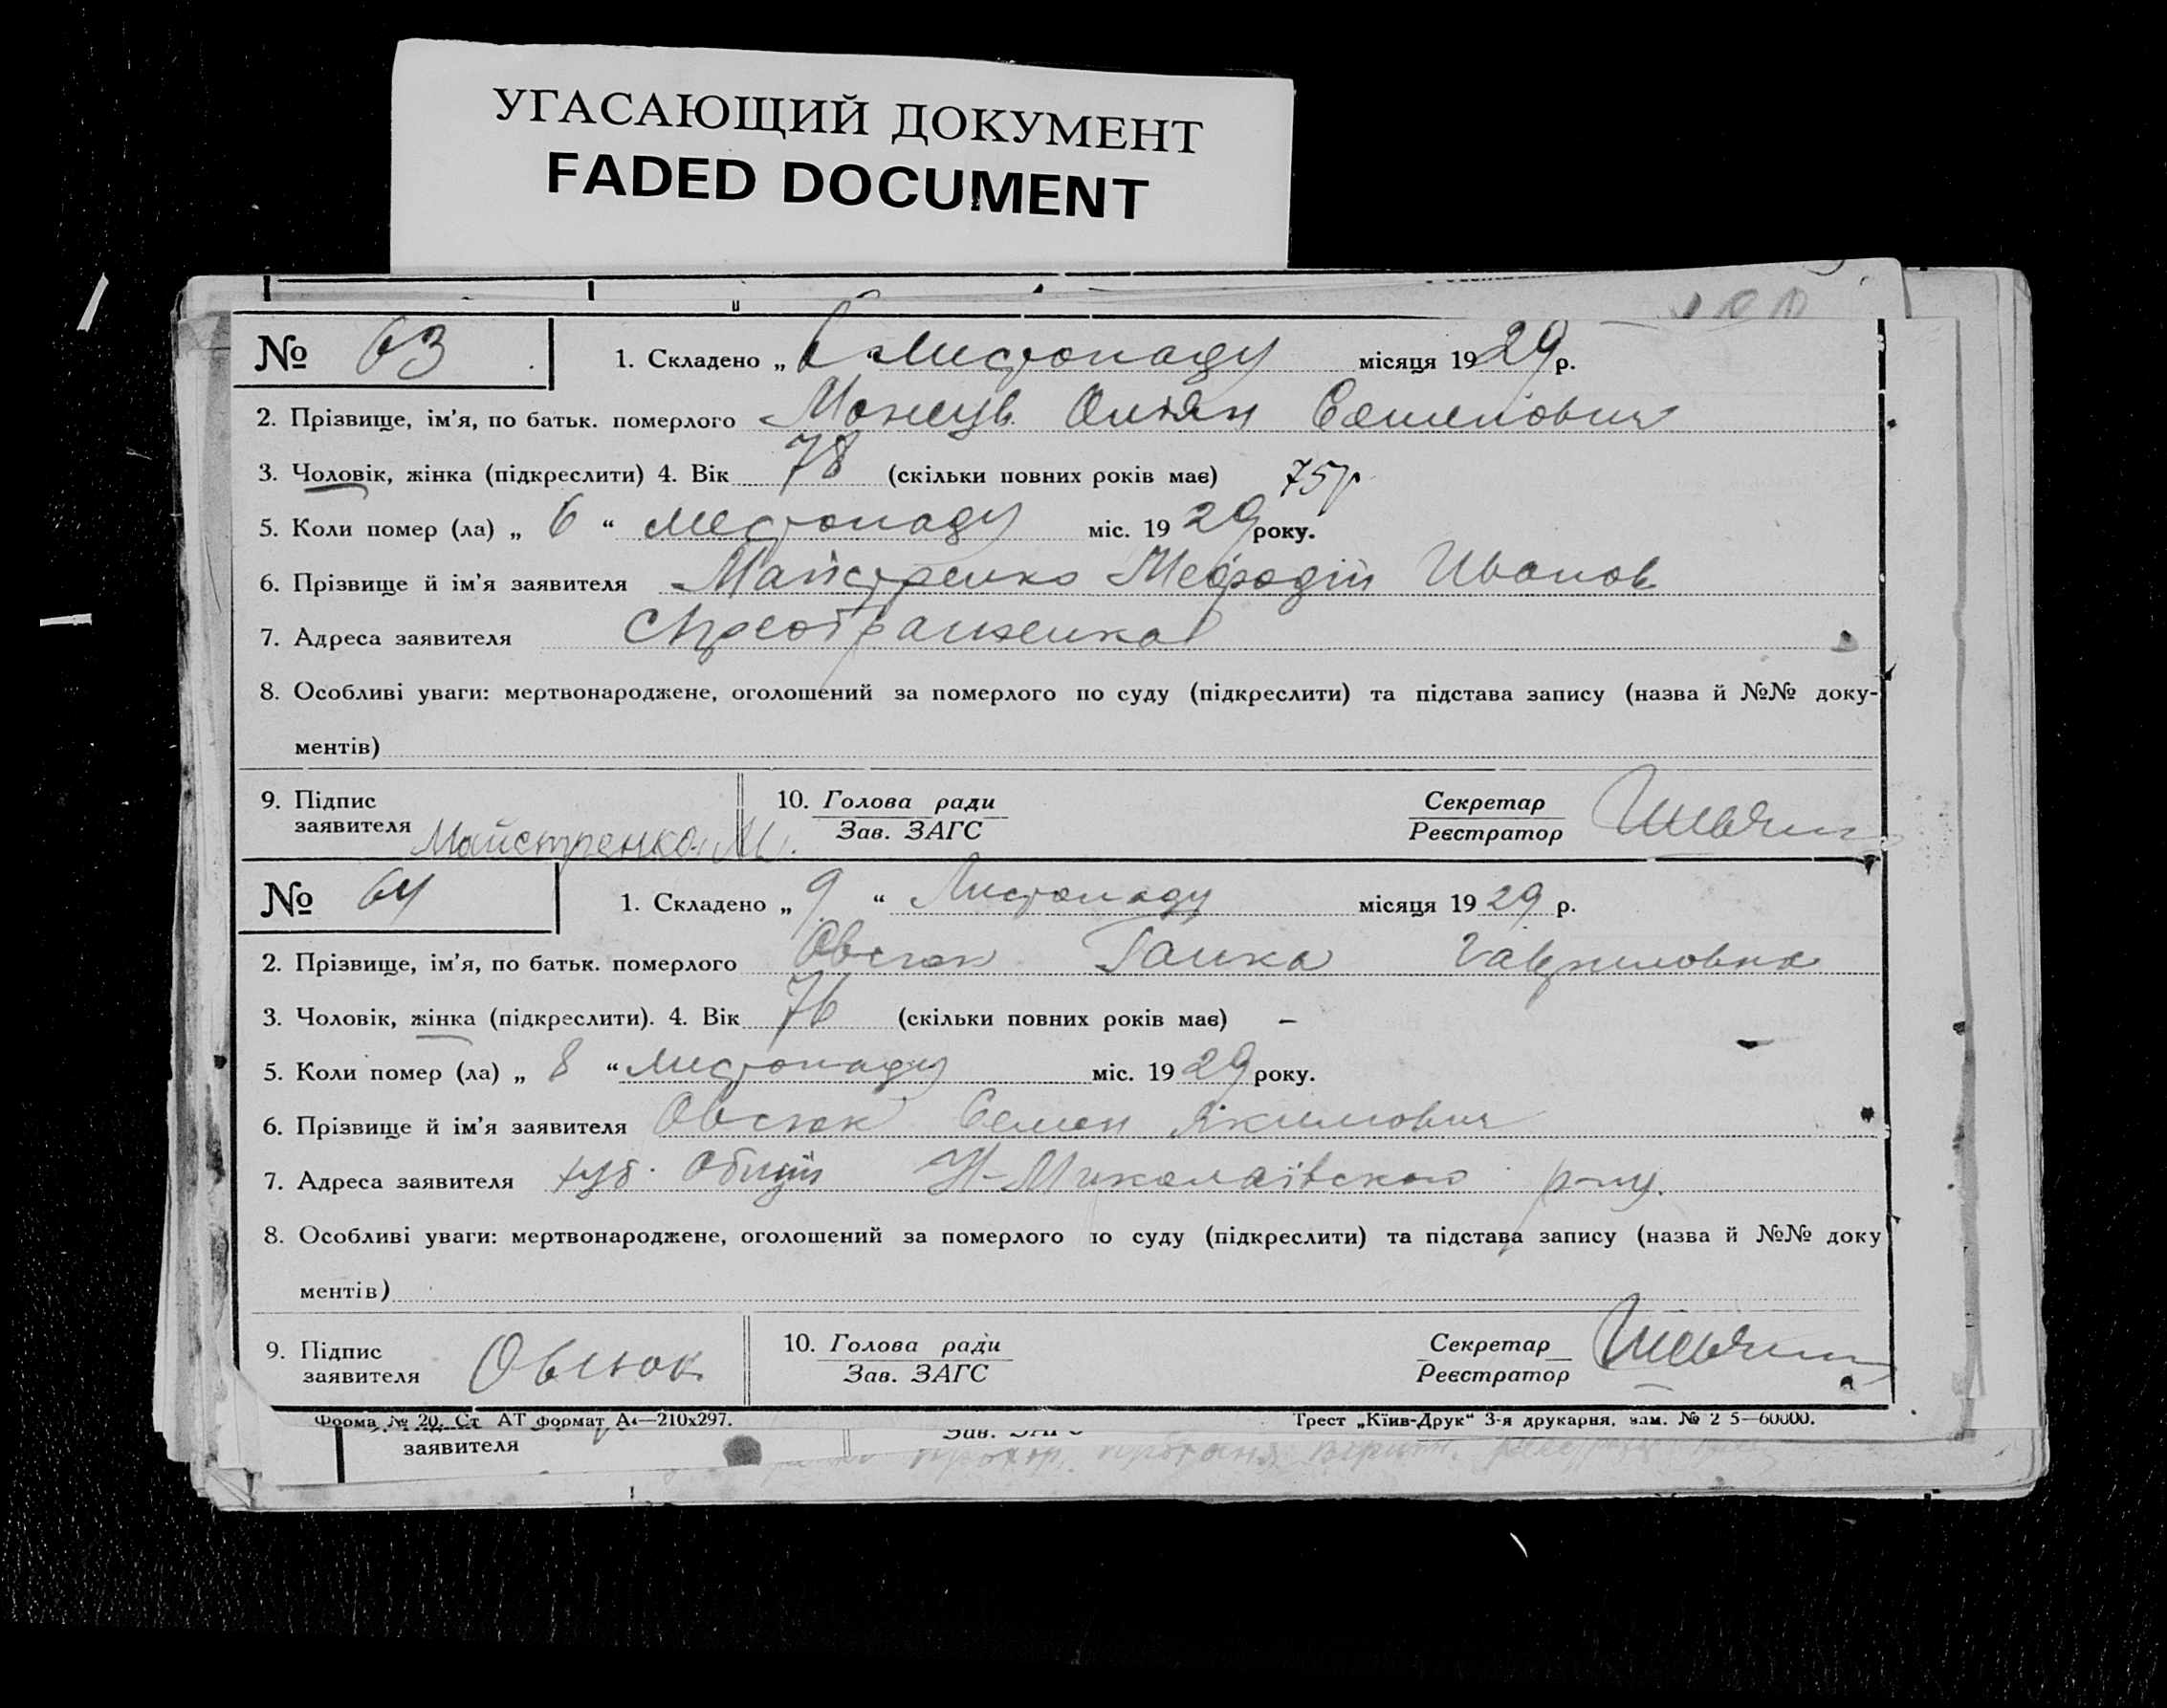 УГАСАЮЩИЙ ДОКУМЕНТ
FADED DOCUMENT
№ 63 1. Складено „ 6 “ Листопаду місяця 1929 р.
2. Прізвище, ім'я, по батьк. померлого
3. Чоловік, жінка (підкреслити) 4. Вік 78 (скільки повних років має) 75р
5. Коли помер (ла) „ 6 “ листопаду міс. 1929 року.
6. Прізвище й ім'я заявителя Майстренко Мефодій Иванов
7. Адреса заявителя
8. Особливі уваги: мертвонароджене, оголошений за померлого по суду (підкреслити) та підстава запису (назва й №№ доку-
ментів)
9. Підпис заявителя Майстренко М. 10. Голова ради Зав. ЗАГС Секретар Реєстратор
№ 64 1. Складено „ 9 “ Листопаду місяця 1929 р.
2. Прізвище, ім'я, по батьк. померлого Овсюк Ганка Гавриловна
3. Чоловік, жінка (підкреслити). 4. Вік 76 (скільки повних років має) –
5. Коли помер (ла) „ 8 “ листопаду міс. 1929 року.
6. Прізвище й ім'я заявителя Овсюк Семен Якимович
7. Адреса заявителя хут. Н-Миколаївского р-ну.
8. Особливі уваги: мертвонароджене, оголошений за померлого по суду (підкреслити) та підстава запису (назва й №№ доку
ментів)
9. Підпис заявителя Овсюк 10. Голова ради Зав. ЗАГС Секретар Реєстратор
Форма № 20. Ст АТ формат А4—210х297. Трест „Київ-Друк“ 3-я друкарня, зам. №
заявителя